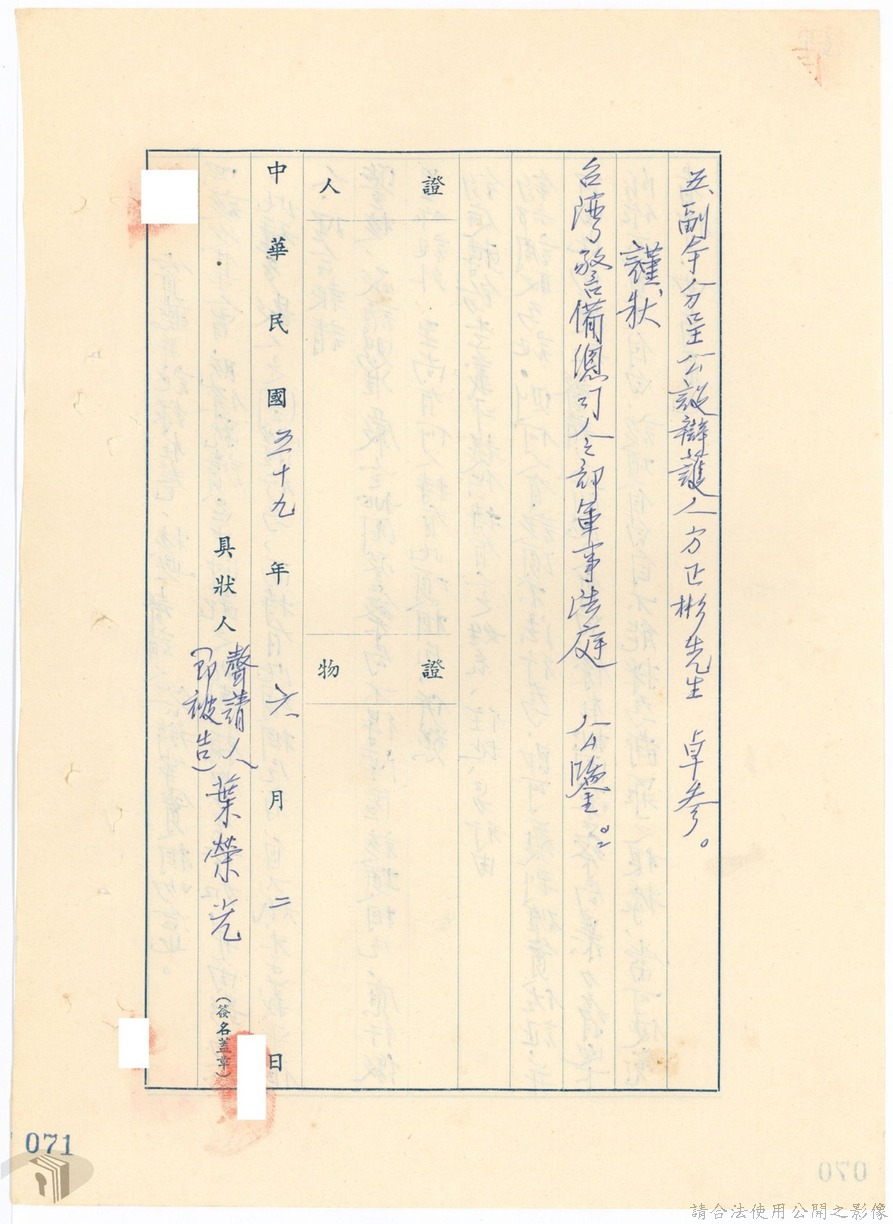 五、副本分呈公設辯護人方正彬先生 卓參。
謹狀
台灣警備總司令部軍事法庭 公鑒。
證人
證物
中華民國五十九年六月二日
具狀人 聲請人(即被告) 葉榮光 (簽名蓋章)
071
070
請合法使用公開之影像